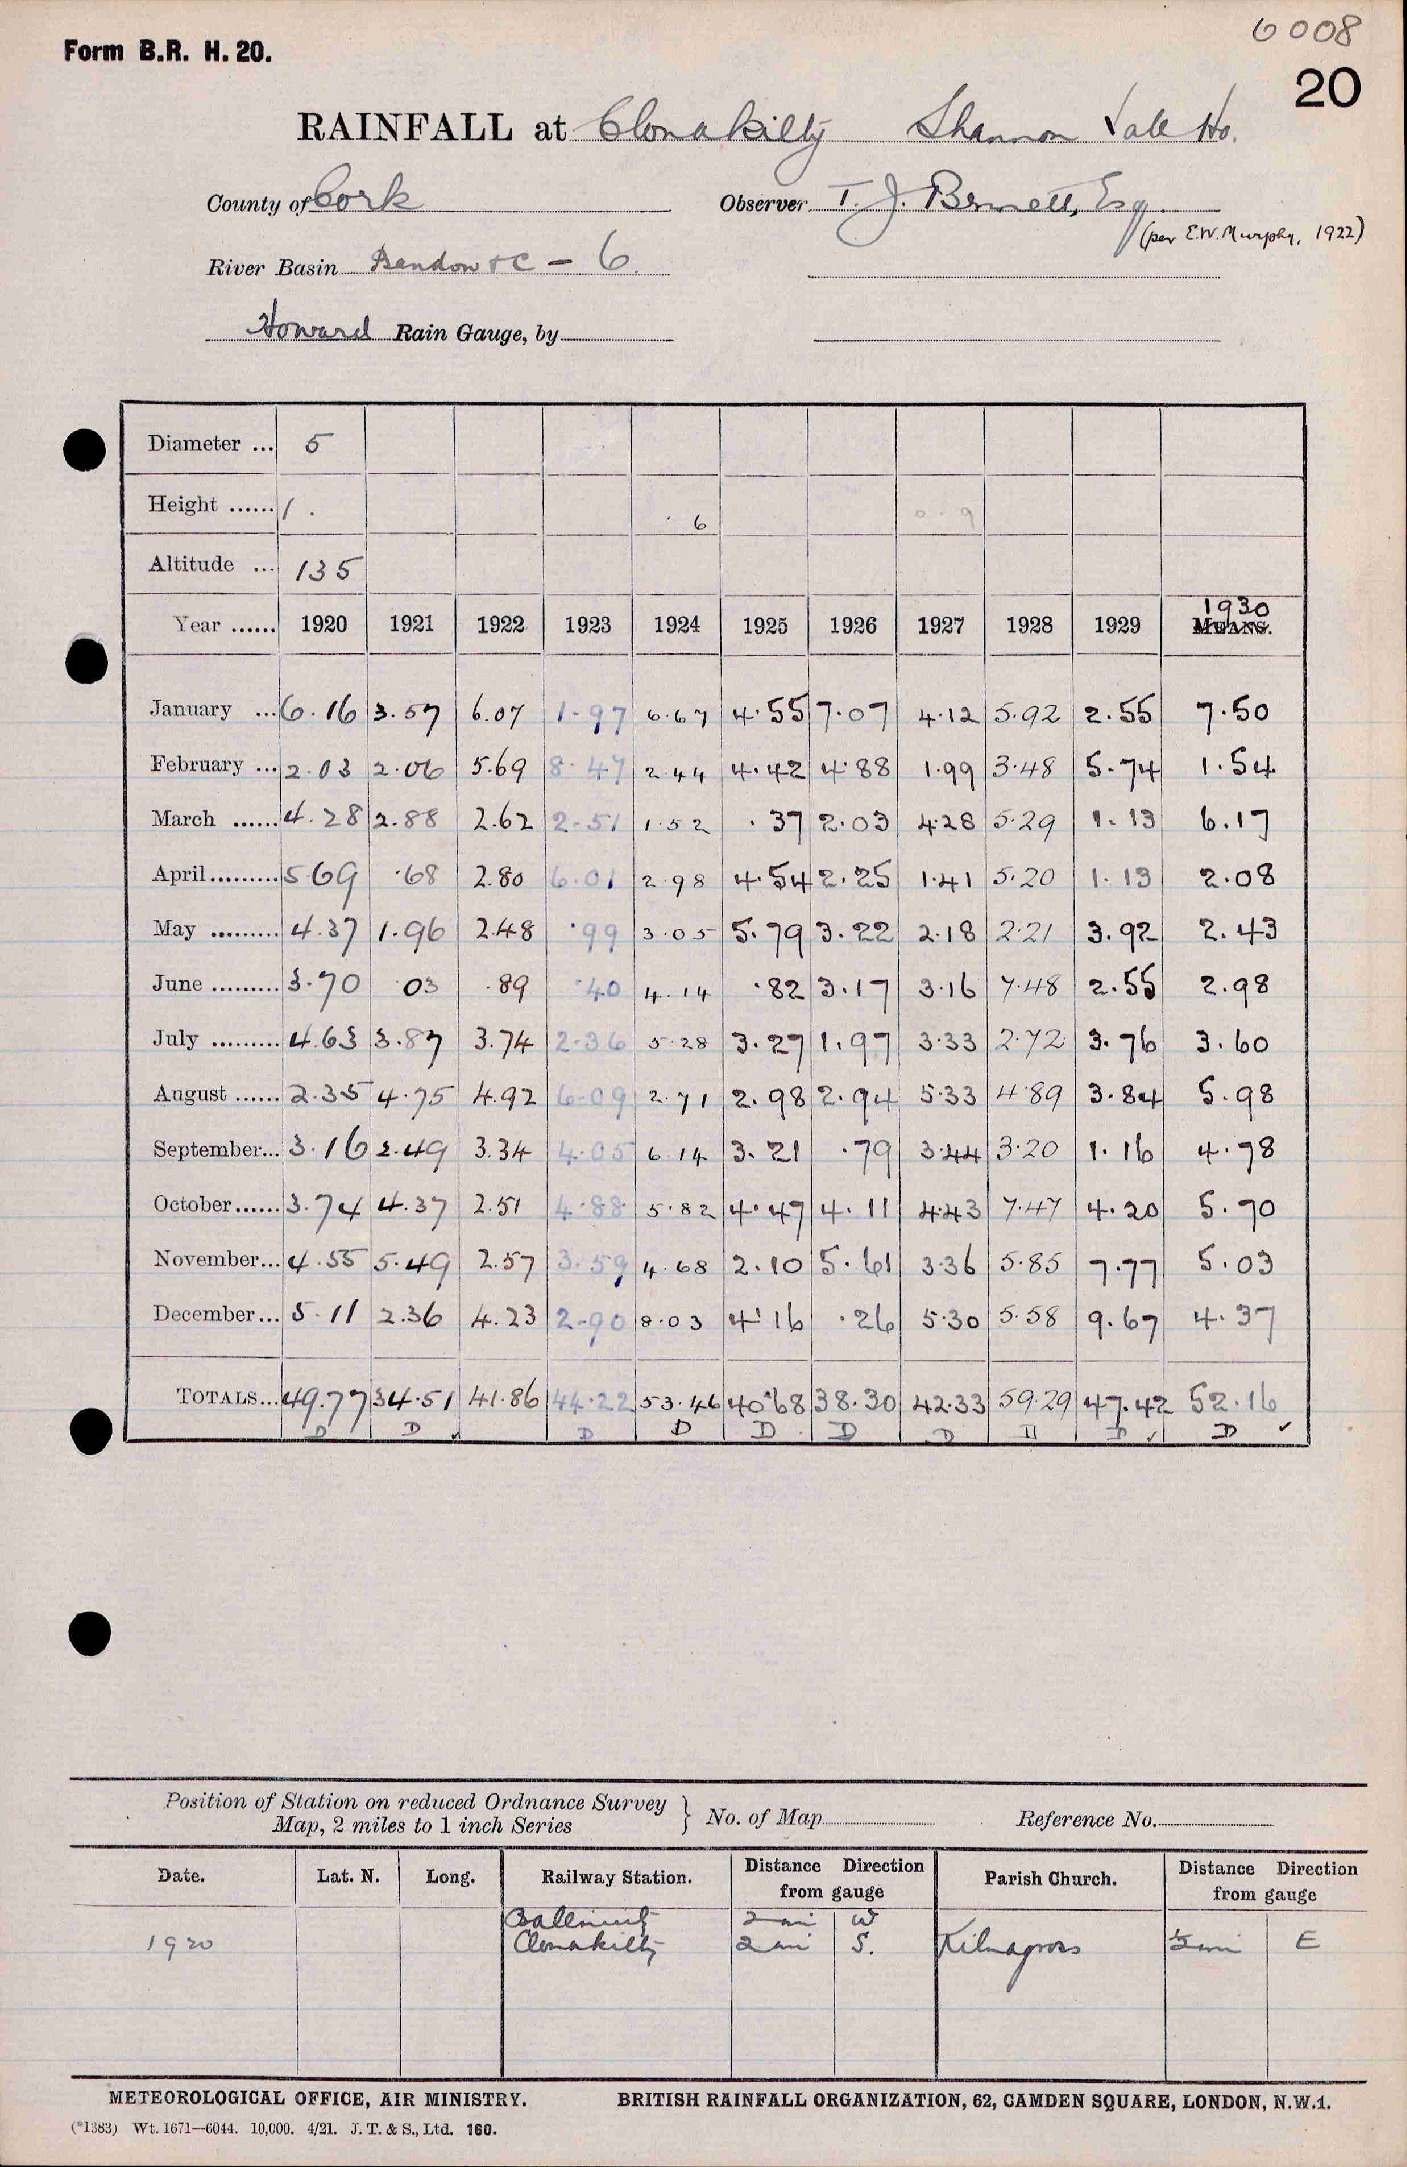 6008
Form B.R. H. 20.
20
RAINFALL at Clonakilty Shannon Vale Ho.
County of Cork
Observer T. J. Bennett, Esq.
(per E.W. Murphy, 1922)
River Basin Bandon & C - 6
Howard Rain Gauge, by
Diameter ... 5
Height ...... 1 . . 6 0.9
Altitude ... 135
Year ...... 1920 1921 1922 1923 1924 1925 1926 1927 1928 1929 1930 MEANS.
January ... 6.16 3.57 6.07 1.97 6.67 4.55 7.07 4.12 5.92 2.55 7.50
February ... 2.03 2.06 5.69 8.47 2.44 4.42 4.88 1.99 3.48 5.74 1.54
March ...... 4.28 2.88 2.62 2.51 1.52 .37 2.03 4.28 5.29 1.13 6.17
April ......... 5 69 .68 2.80 6.01 2.98 4.54 2.25 1.41 5.20 1.13 2.08
May ......... 4.37 1.96 2.48 .99 3.05 5.79 3.22 2.18 2.21 3.92 2.43
June ......... 3.70 03 .89 .40 4.14 .82 3.17 3.16 7.48 2.55 2.98
July ......... 4.63 3.87 3.74 2.36 5.28 3.27 1.97 3.33 2.72 3.76 3.60
August ...... 2.35 4.75 4.92 6.09 2.71 2.98 2.94 5.33 4.89 3.84 5.98
September... 3.16 2.49 3.34 4.05 6.14 3.21 .79 3.44 3.20 1.16 4.78
October...... 3.74 4.37 2.51 4.88 5.82 4.47 4.11 4.43 7.47 4.20 5.70
November... 4.55 5.49 2.57 3.59 4.68 2.10 5.61 3.36 5.85 7.77 5.03
December... 5.11 2.36 4.23 2.90 8.03 4.16 .26 5.30 5.58 9.67 4.37
TOTALS... 49.77 34.51 41.86 44.22 53.46 40.68 38.30 42.33 59.29 47.42 52.16
D D ✓ D D D D D D D ✓ D ✓
Position of Station on reduced Ordnance Survey
Map, 2 miles to 1 inch Series } No. of Map Reference No.
Date. Lat. N. Long. Railway Station. Distance Direction from gauge Parish Church. Distance Direction from gauge
2 mi W
1920 Clonakilty 2 mi S. Kilnagross ½ mi E
METEOROLOGICAL OFFICE, AIR MINISTRY. BRITISH RAINFALL ORGANIZATION, 62, CAMDEN SQUARE, LONDON, N.W.1.
(*1383) Wt. 1671—6044. 10,000. 4/21. J. T. & S., Ltd. 160.